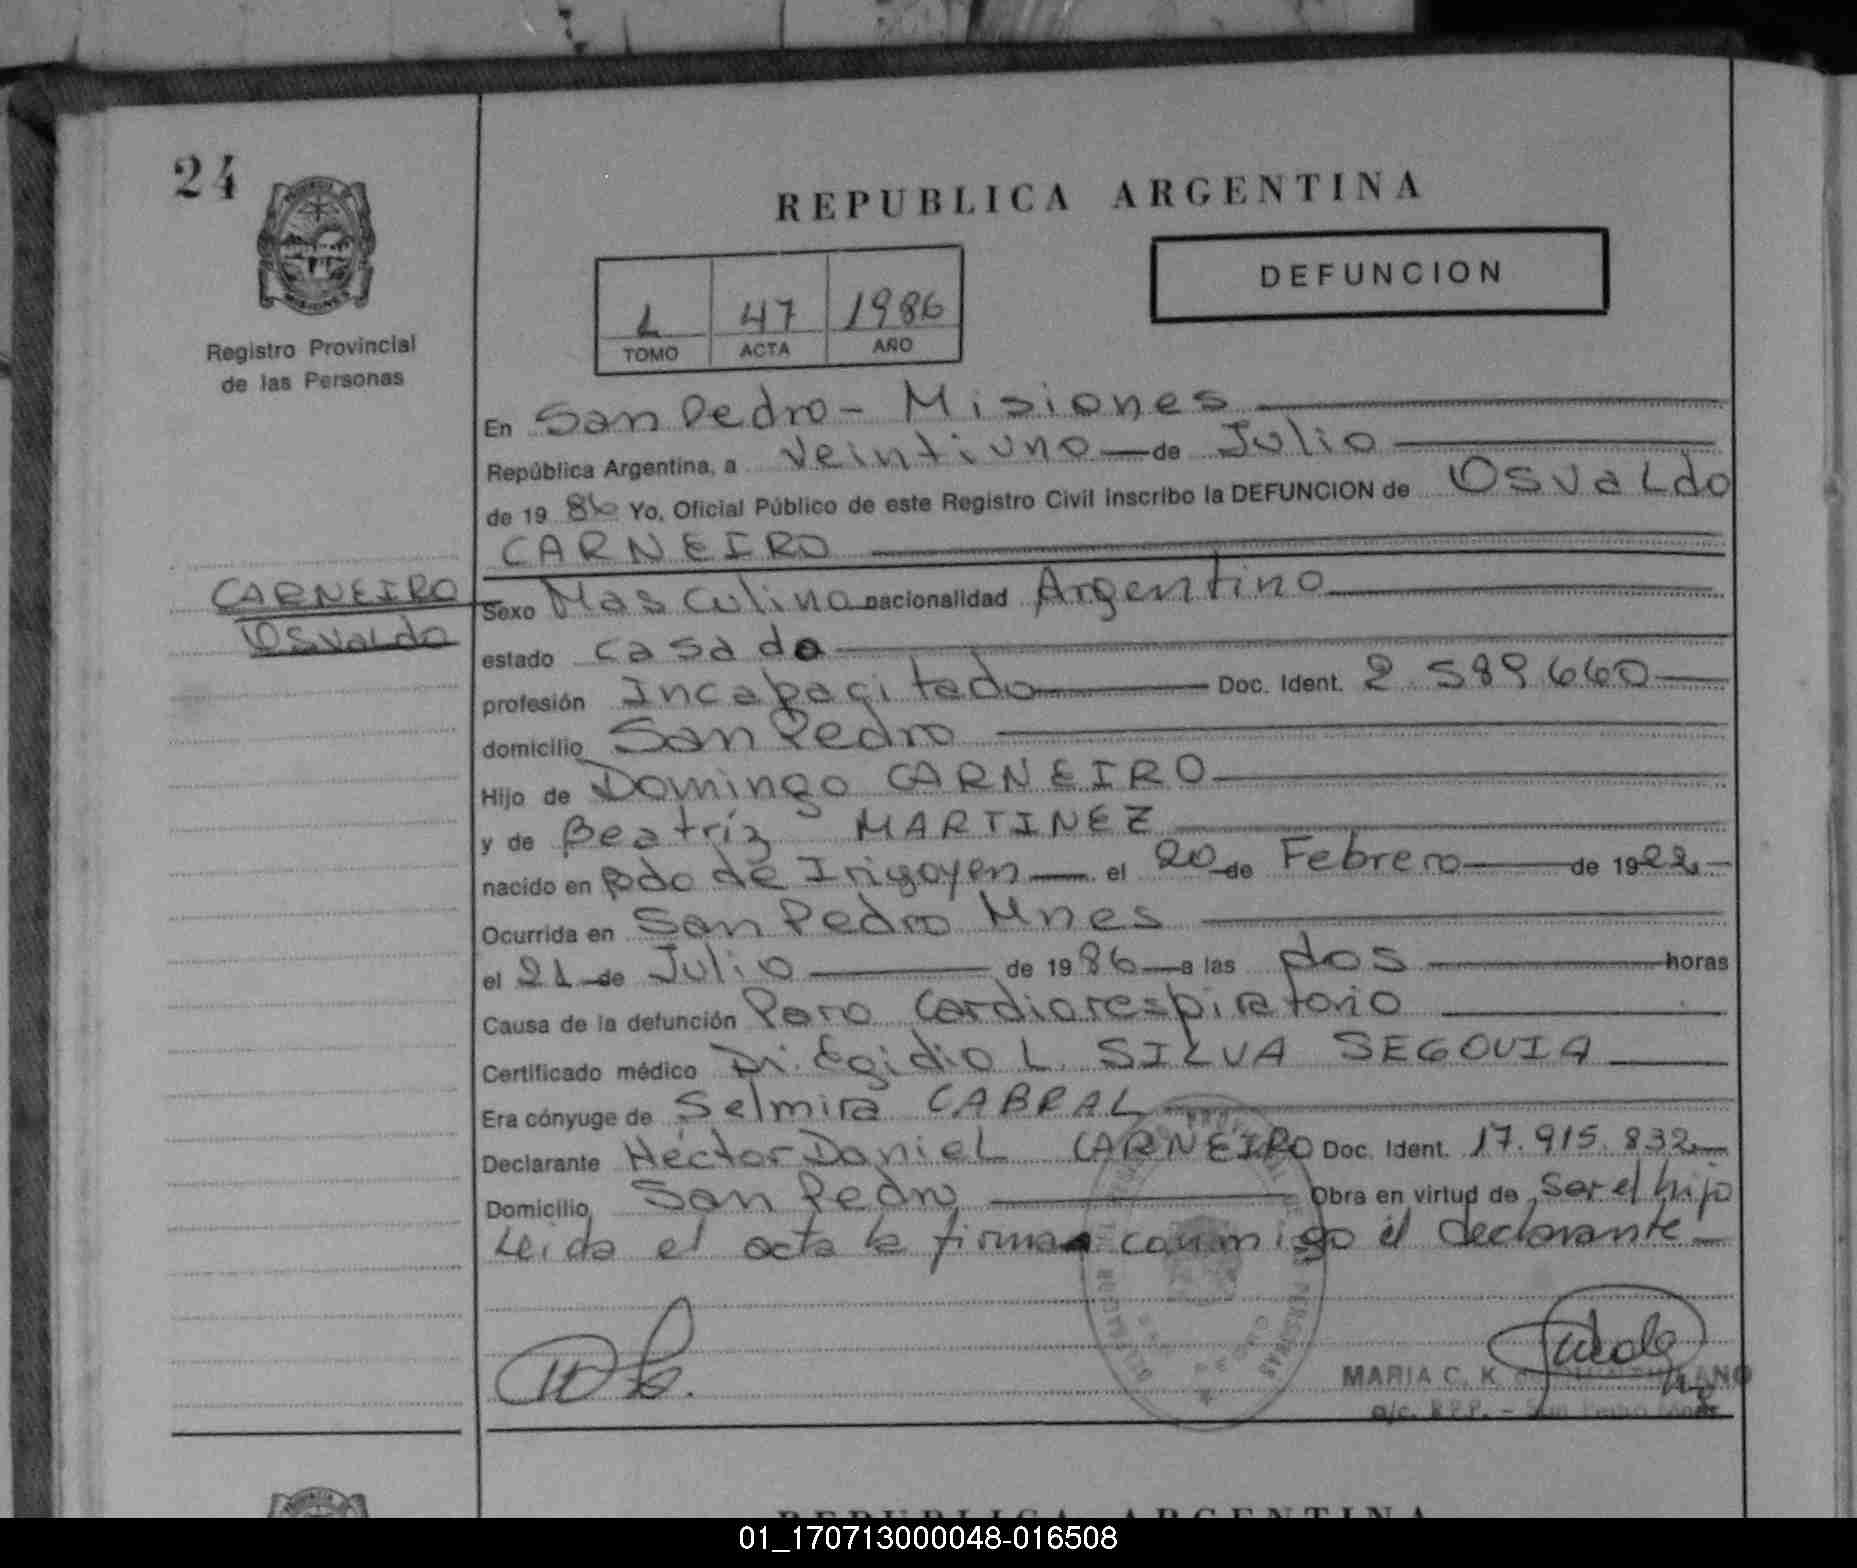 24
REPUBLICA ARGENTINA
DEFUNCION
1 47 1986
TOMO ACTA AÑO
Registro Provincial
de las Personas
En San Pedro - Misiones
República Argentina, a veintiuno de Julio
de 1986 Yo, Oficial Público de este Registro Civil inscribo la DEFUNCION de Osvaldo
CARNEIRO
CARNEIRO
Osvaldo
Sexo Masculino nacionalidad Argentino
estado casado
profesión Incapacitado Doc. Ident. 2.589.660
domicilio San Pedro
Hijo de Domingo CARNEIRO
y de Beatríz MARTINEZ
nacido en Bdo de Irigoyen el 20 de Febrero de 1922
Ocurrida en San Pedro Mnes
el 21 de Julio de 1986 a las dos horas
Causa de la defunción Paro Cardiorespiratorio
Certificado médico Dr. Egidio L. SILVA SEGOVIA
Era cónyuge de Selmira CABRAL
Declarante Héctor Daniel CARNEIRO Doc. Ident. 17.915.832
Domicilio San Pedro Obra en virtud de ser el hijo
Leida el acta la firma conmigo el declarante
MARIA C. K.
REPUBLICA ARGENTINA
01_170713000048-016508